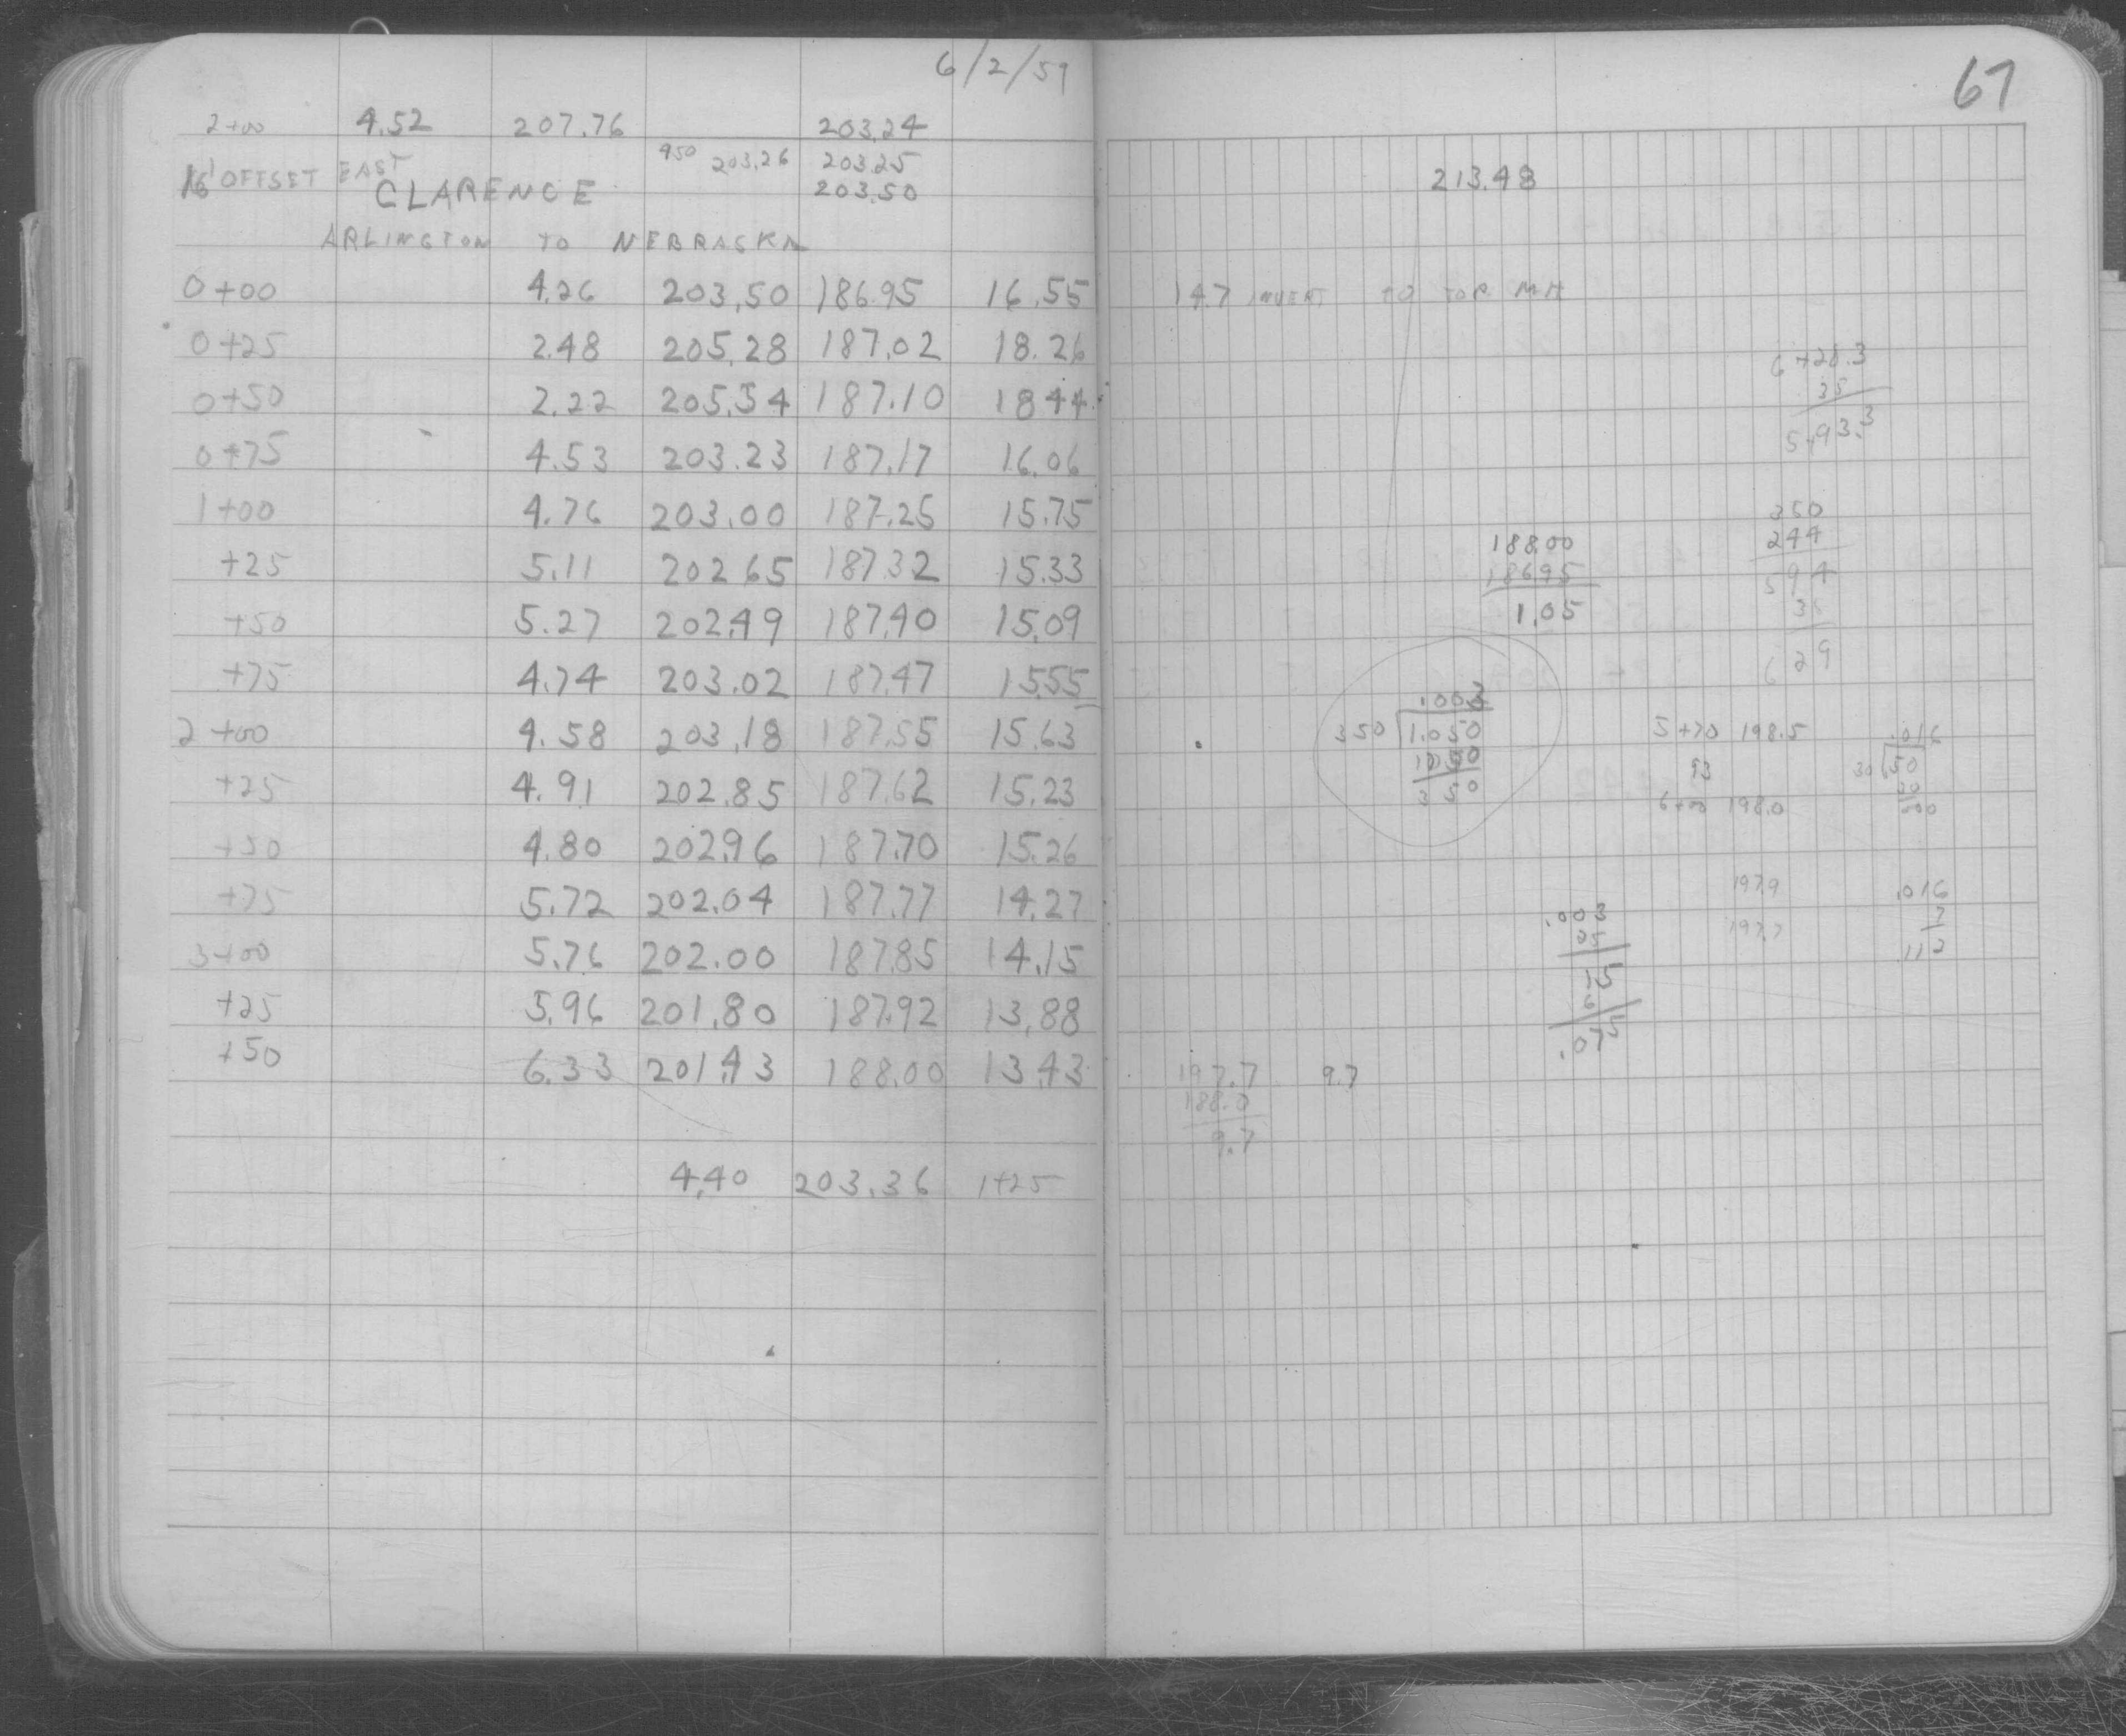 6/2/59
2+00 4.52 207.76 203.24
950 203.26 203.25
16' OFFSET EAST
CLARENCE 203.50
ARLINGTON TO NEBRASKA
0+00 4.26 203.50 186.95 16.55
0+25 2.48 205.28 187.02 18.26
0+50 2.22 205.54 187.10 18.44
0+75 4.53 203.23 187.17 16.06
1+00 4.76 203.00 187.25 15.75
+25 5.11 202.65 187.32 15.33
+50 5.27 202.49 187.40 15.09
+75 4.74 203.02 187.47 15.55
2+00 4.58 203.18 187.55 15.63
+25 4.91 202.85 187.62 15.23
+50 4.80 202.96 187.70 15.26
+75 5.72 202.04 187.77 14.27
3+00 5.76 202.00 187.85 14.15
+25 5.96 201.80 187.92 13.88
+50 6.33 201.43 188.00 13.43
4.40 203.36 1+25
67
213.48
14.7 INVERT TO TOP MH
6+28.3
35
5+93.3
350
244
594
35
629
188.00
186.95
1.05
.003
350 1.050
1050
350
5+70 198.5
93
6+00 198.0
.016
30 .50
30
200
197.9
197.7
.016
7
.112
.003
25
15
6
.075
197.7 9.7
188.0
9.7